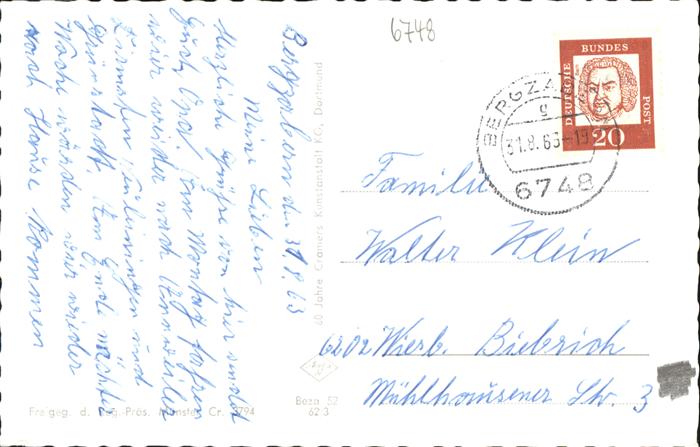 6748
DEUTSCHE
BUNDES
POST
20
BERGZA
g
31.8.63-19
6748
Bergzabern den 31.8.63
Meine Lieben
Herzliche Grüße von hier sendet
Euch Opa. Am Montag fahren
wir wieder nach Annweiler
Pirmasens, und
Grünstadt. Am Ende nächster
Woche würden wir wieder
nach Hause kommen
Familie
Walter Klein
6202 Wiesb. Biebrich
Mühlhausener Str. 3
60 Jahre Cramers Kunstanstalt KG, Dortmund
Freigeg. d. Reg.-Präs. Münster Cr. 3794
Beza 52
62 3